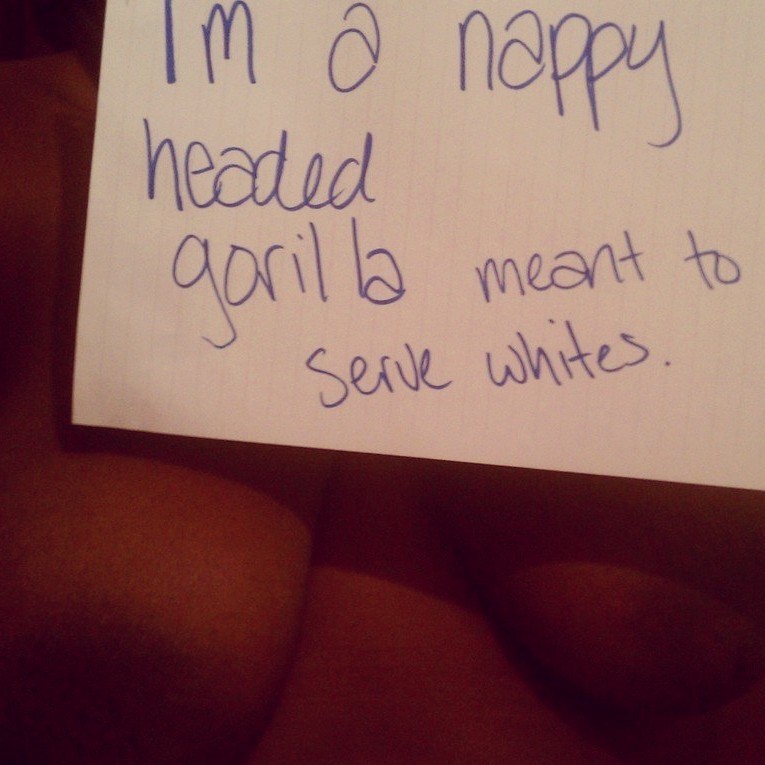 I'm a nappy
headed
gorilla meant to
serve whites.